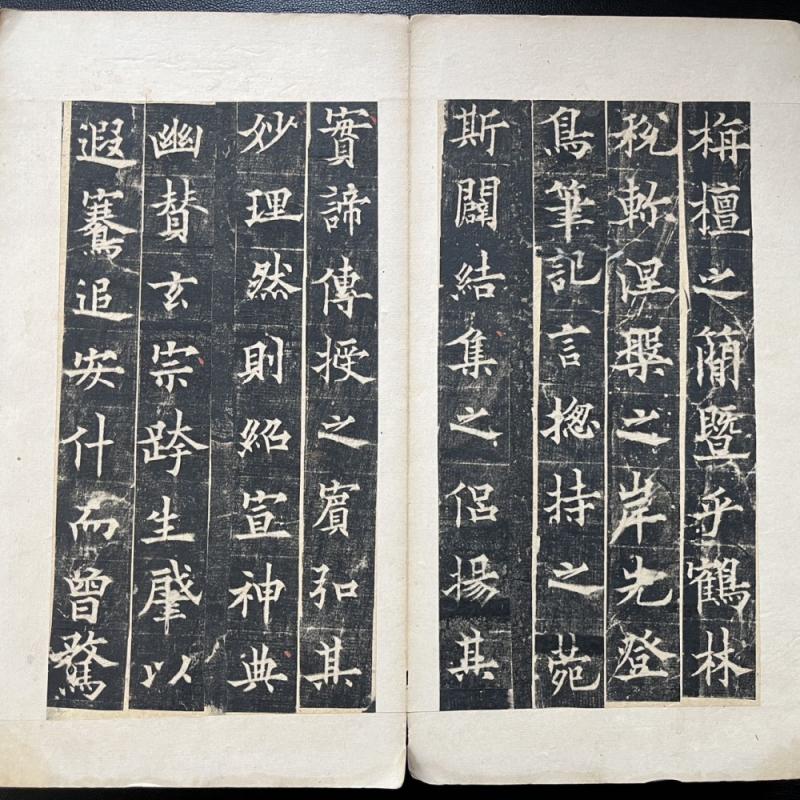 栴檀之簡暨乎鶴林
稅軫涅槃之岸先登
鳥筆記言揔持之菀
斯闢結集之侶揚其
實諦傳授之賓弘其
妙理然則紹宣神典
幽贊玄宗跨生肇以
遐騫追安什而曾騖